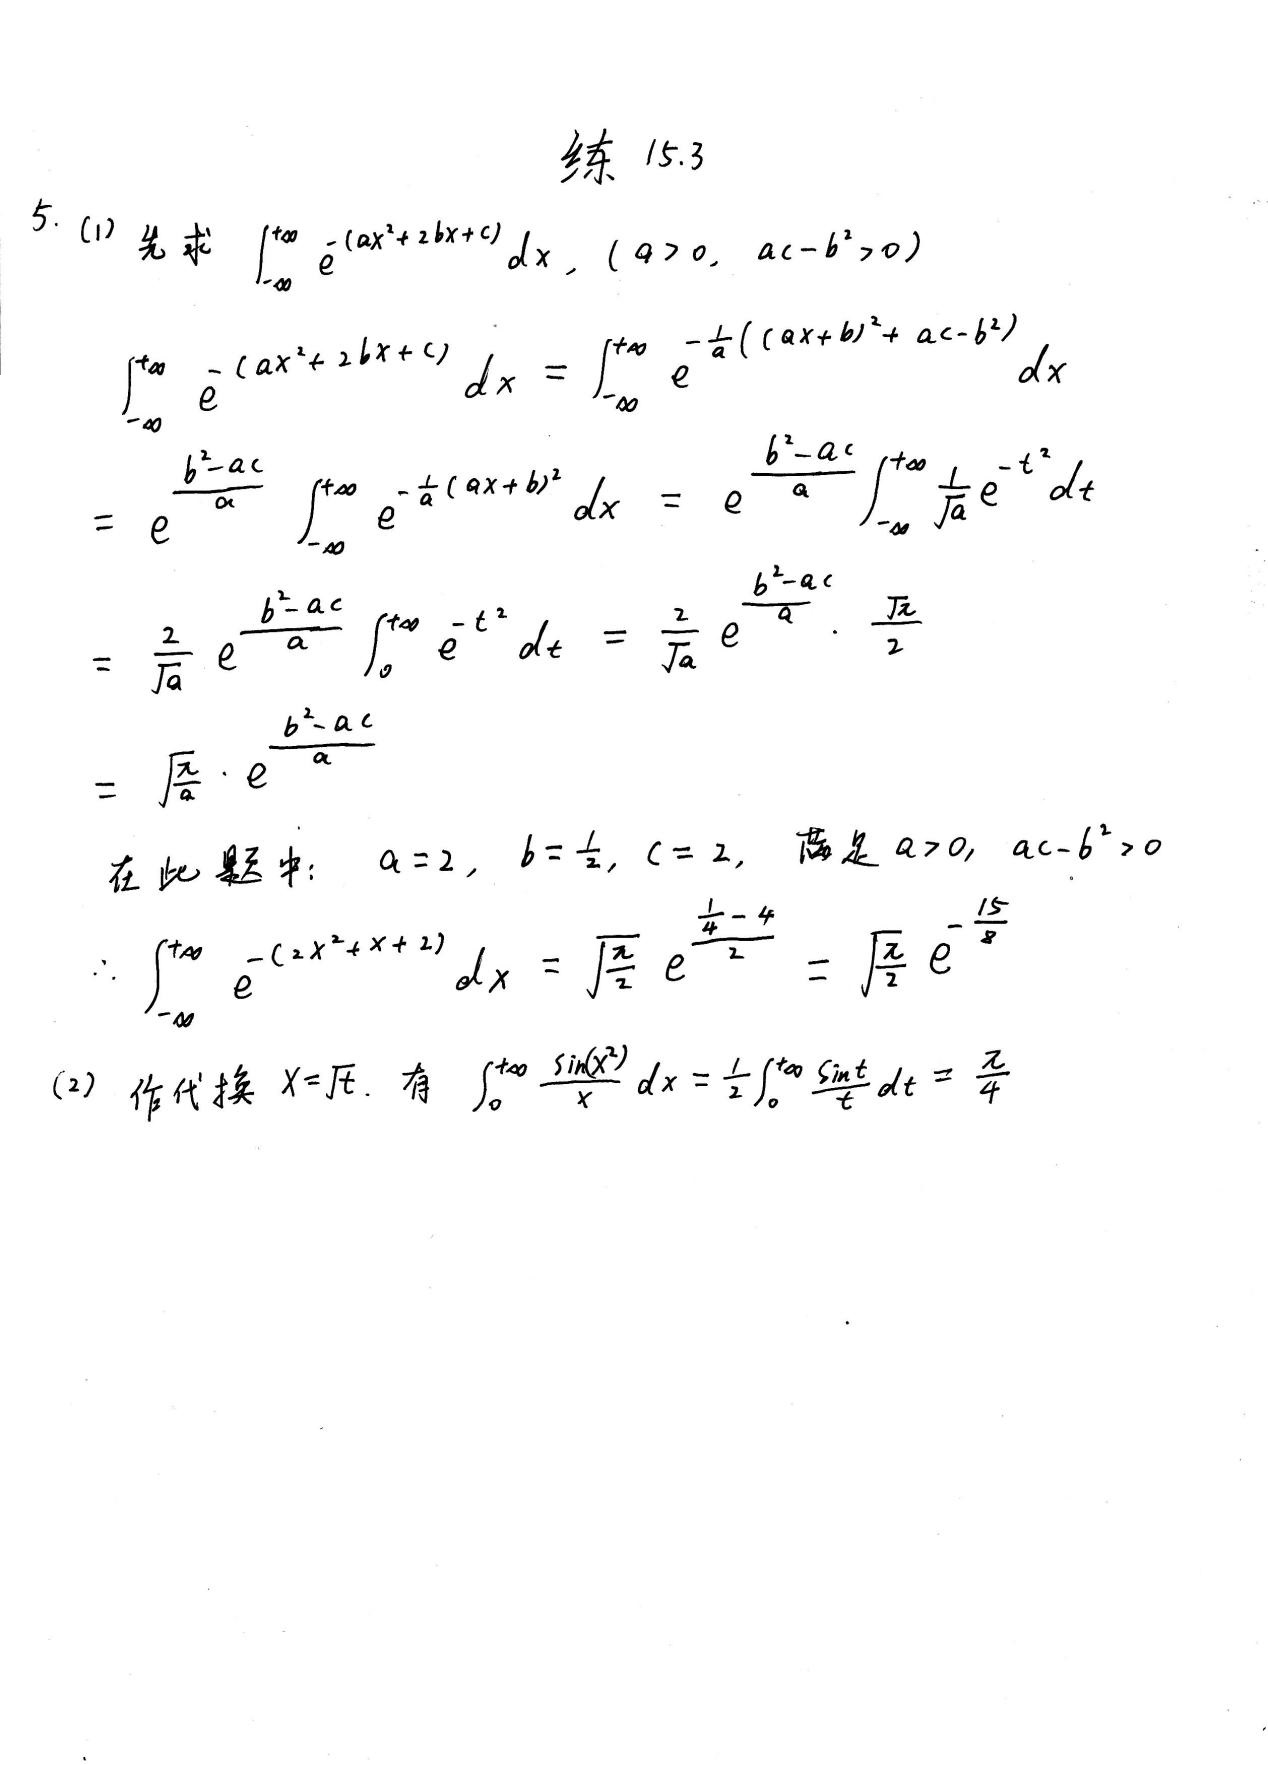 练 15.3
5. (1) 先求 $\int_{-\infty}^{+\infty} e^{-(ax^2+2bx+c)} dx$, ($a>0$, $ac-b^2>0$)
$\int_{-\infty}^{+\infty} e^{-(ax^2+2bx+c)} dx = \int_{-\infty}^{+\infty} e^{-\frac{1}{a}((ax+b)^2+ac-b^2)} dx$
$= e^{\frac{b^2-ac}{a}} \int_{-\infty}^{+\infty} e^{-\frac{1}{a}(ax+b)^2} dx = e^{\frac{b^2-ac}{a}} \int_{-\infty}^{+\infty} \frac{1}{\sqrt{a}} e^{-t^2} dt$
$= \frac{2}{\sqrt{a}} e^{\frac{b^2-ac}{a}} \int_{0}^{+\infty} e^{-t^2} dt = \frac{2}{\sqrt{a}} e^{\frac{b^2-ac}{a}} \cdot \frac{\sqrt{\pi}}{2}$
$= \sqrt{\frac{\pi}{a}} \cdot e^{\frac{b^2-ac}{a}}$
在此题中: $a=2$, $b=\frac{1}{2}$, $c=2$, 满足 $a>0$, $ac-b^2>0$
$\therefore \int_{-\infty}^{+\infty} e^{-(2x^2+x+2)} dx = \sqrt{\frac{\pi}{2}} e^{\frac{\frac{1}{4}-4}{2}} = \sqrt{\frac{\pi}{2}} e^{-\frac{15}{8}}$
(2) 作代换 $x=\sqrt{t}$. 有 $\int_{0}^{+\infty} \frac{\sin(x^2)}{x} dx = \frac{1}{2} \int_{0}^{+\infty} \frac{\sin t}{t} dt = \frac{\pi}{4}$